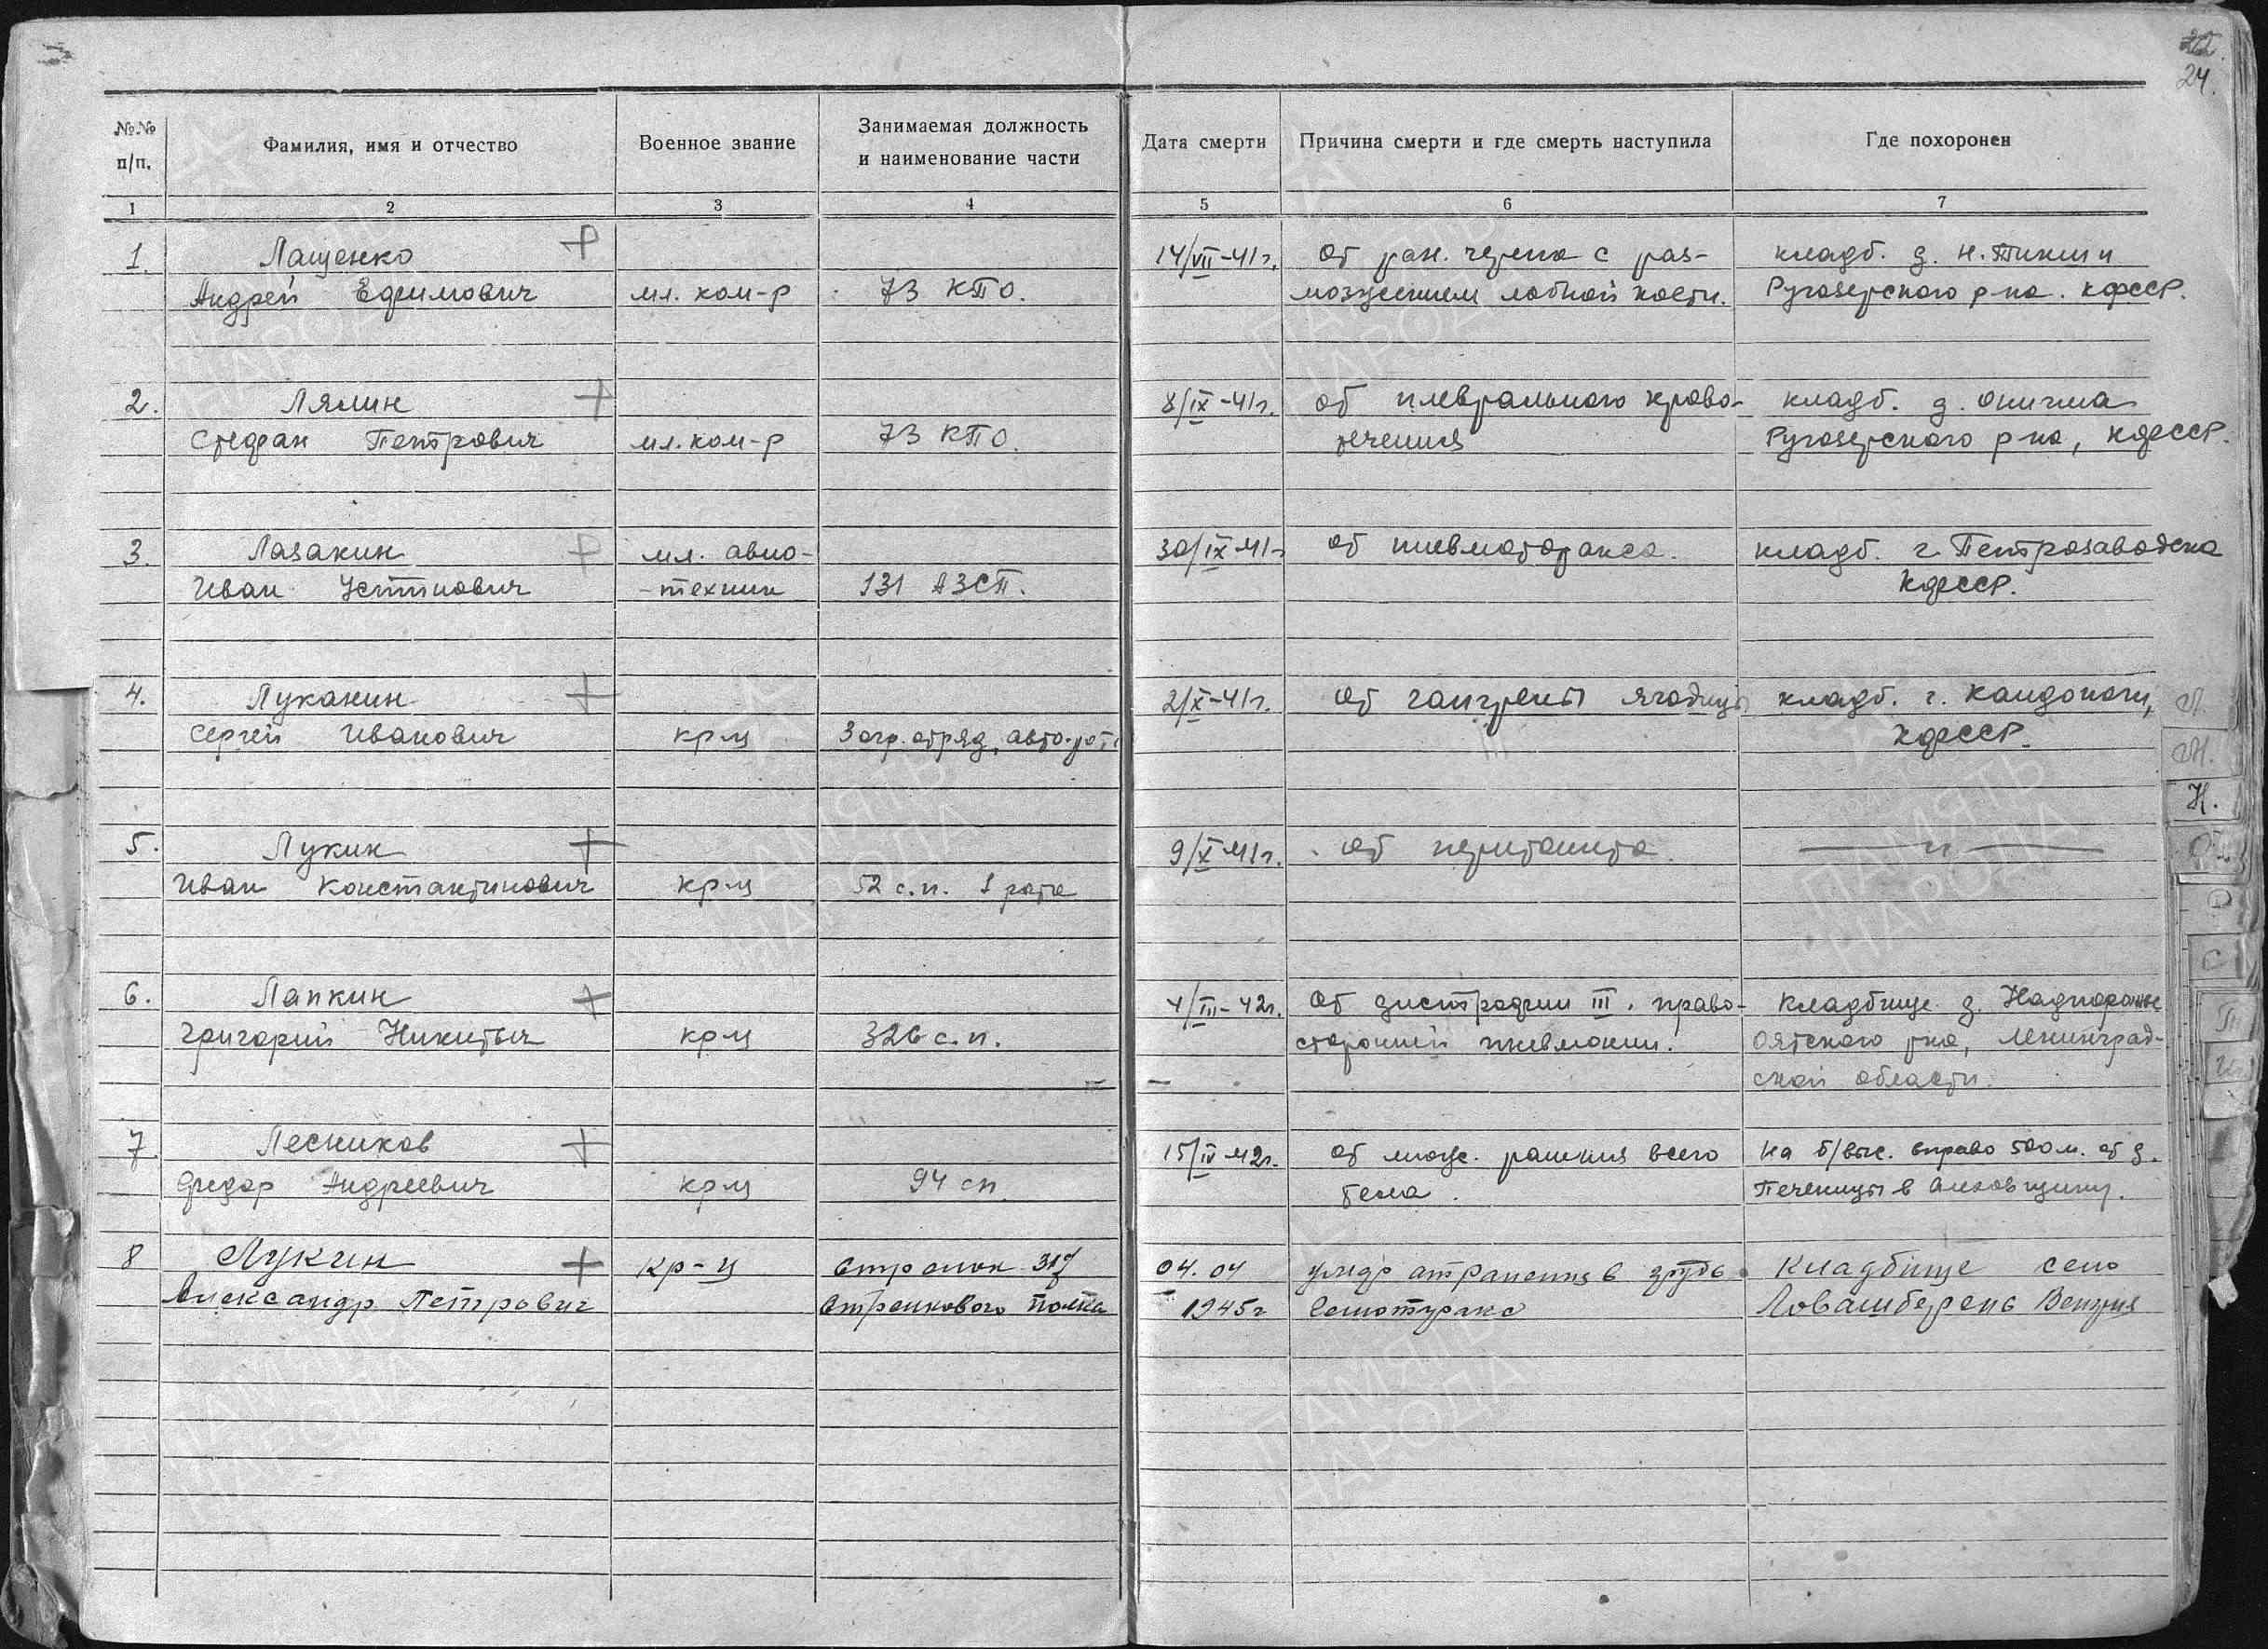 22.
24.
№№ п/п.
Фамилия, имя и отчество
Военное звание
Занимаемая должность и наименование части
Дата смерти
Причина смерти и где смерть наступила
Где похоронен
1 2 3 4 5 6 7
1. Лащенко 14/VII-41г. от ран. черепа с раз- кладб. д. Н. Тикши
Андрей Ефимович мл. ком-р 73 КПО. мозжением лобной кости. Ругозерского р-на. КФССР.
2. Лялин 8/IX-41г. от плеврального крово- кладб. д. Онигма
Стефан Петрович мл. ком-р 73 КПО. течения Ругозерского р-на, КФССР.
3. Лазакин мл. авио- 30/IX 41г от пневмоторакса. кладб. г. Петрозаводска
Иван Устинович -техник 131 АЗСП. КФССР.
4. Луканин 2/X-41г. от гангрены ягодицы кладб. г. Кандопоги,
Сергей Иванович кр-ц 3 огр. отряд, авто-рота КФССР.
5. Лукин 9/X 41г. от перитонита. — " —
Иван Константинович кр-ц 52 с.п. 1 рота
6. Лапкин 4/III-42г. от дистрофии III. право- кладбище д. Надпорожье
Григорий Никитич кр-ц 326 с.п. сторонней пневмонии. Оятского р-на, Ленинград-
ской области.
7. Лесников 15/IV 42г. от множ. ранения всего на б/выс. вправо 500 м. от д.
Федор Андреевич кр-ц 94 сп. тела. Печеницы в Алеховщину.
8 Лукин кр-ц Стрелок 317 04.04 умер от ранения в грудь Кладбище село
Александр Петрович Стрелкового полка 1945г Гемоторакс Ловашберень Венгрия
Л.
М.
Н.
О
Р
С
Т
ПАМЯТЬ НАРОДА